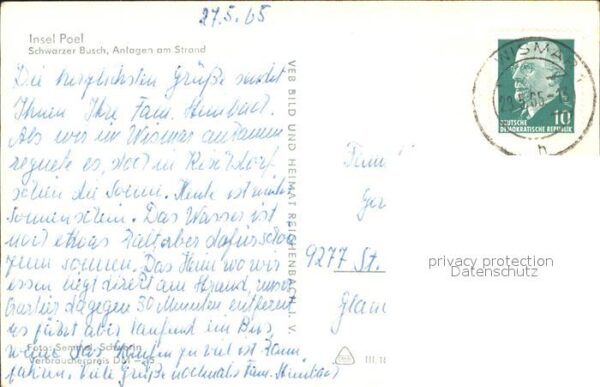 27.5.65
Insel Poel
Schwarzer Busch, Anlagen am Strand
Die herzlichsten Grüße sendet
Ihnen Ihre Fam. Heimbach.
Als wir in Wismar ankamen
regnete es, doch in
schien die Sonne. Heute ist
Sonnenschein. Das Wasser ist
noch etwas kalt, aber dafür schön
zum sonnen. Das Heim wo wir
essen liegt direkt am Strand, unser
Quartier dagegen 30 Minuten entfernt
es fährt aber laufend ein Bus
wenn das Laufen zu viel ist kann
fahren. Viele Grüße nochmals Fam. Heimbach
Foto: Schwerin
Verbraucherpreis DM
VEB BILD UND HEIMAT REICHENBACH I. V.
WISMAR 1
10
DEUTSCHE
DEMOKRATISCHE REPUBLIK
9277 St.
privacy protection
Datenschutz